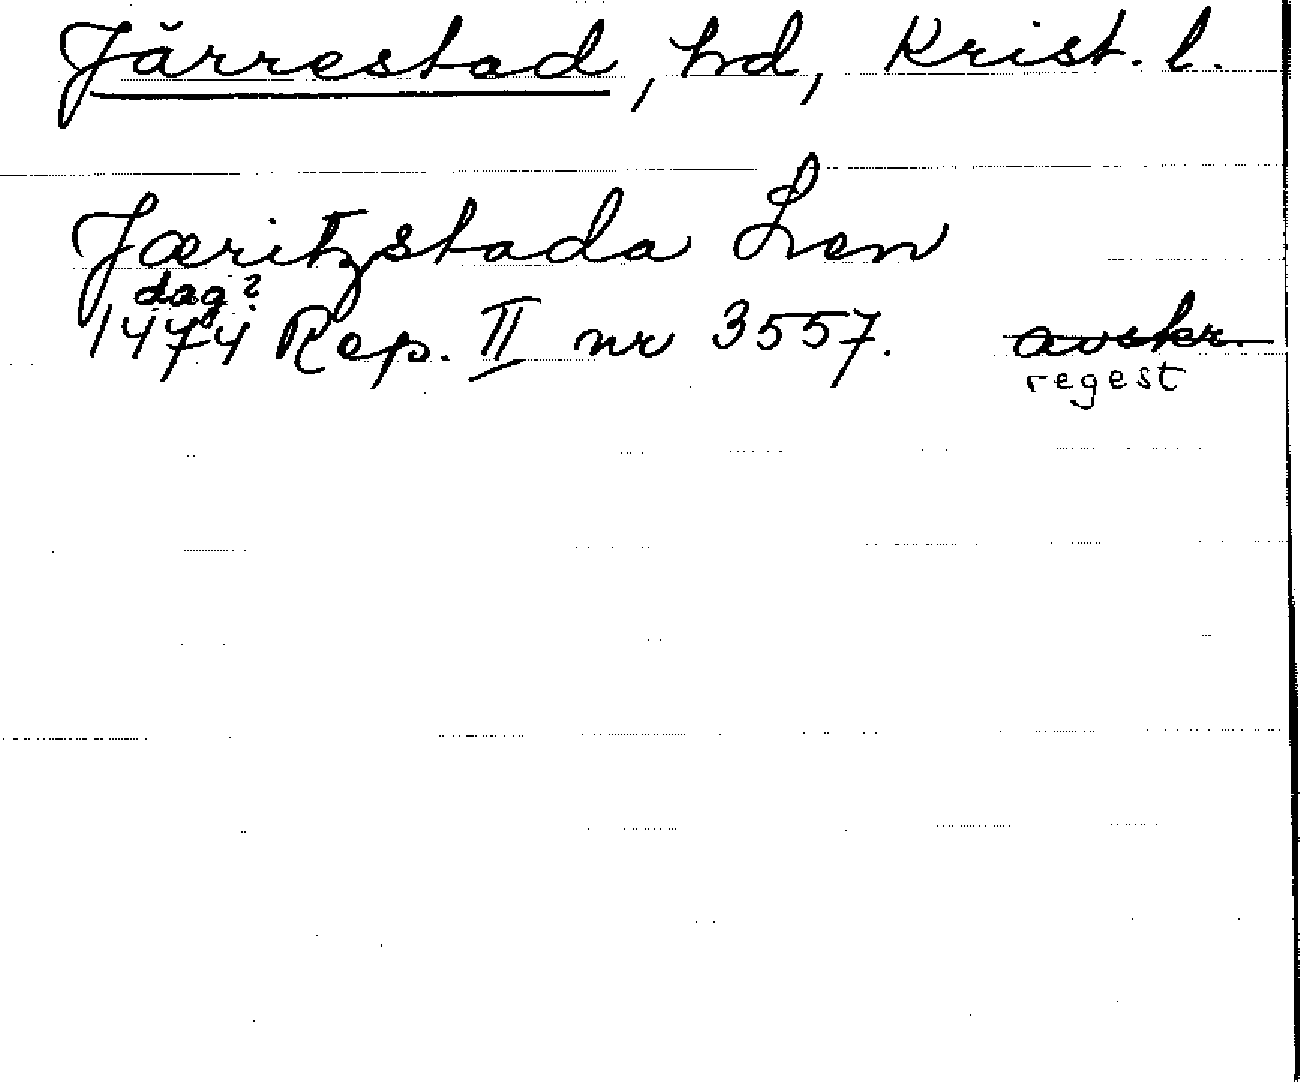 Järrestad, hd, Krist. l.
Jæritzstada Len
dag?
1474 Rep. II nr 3557. avskr.
regest